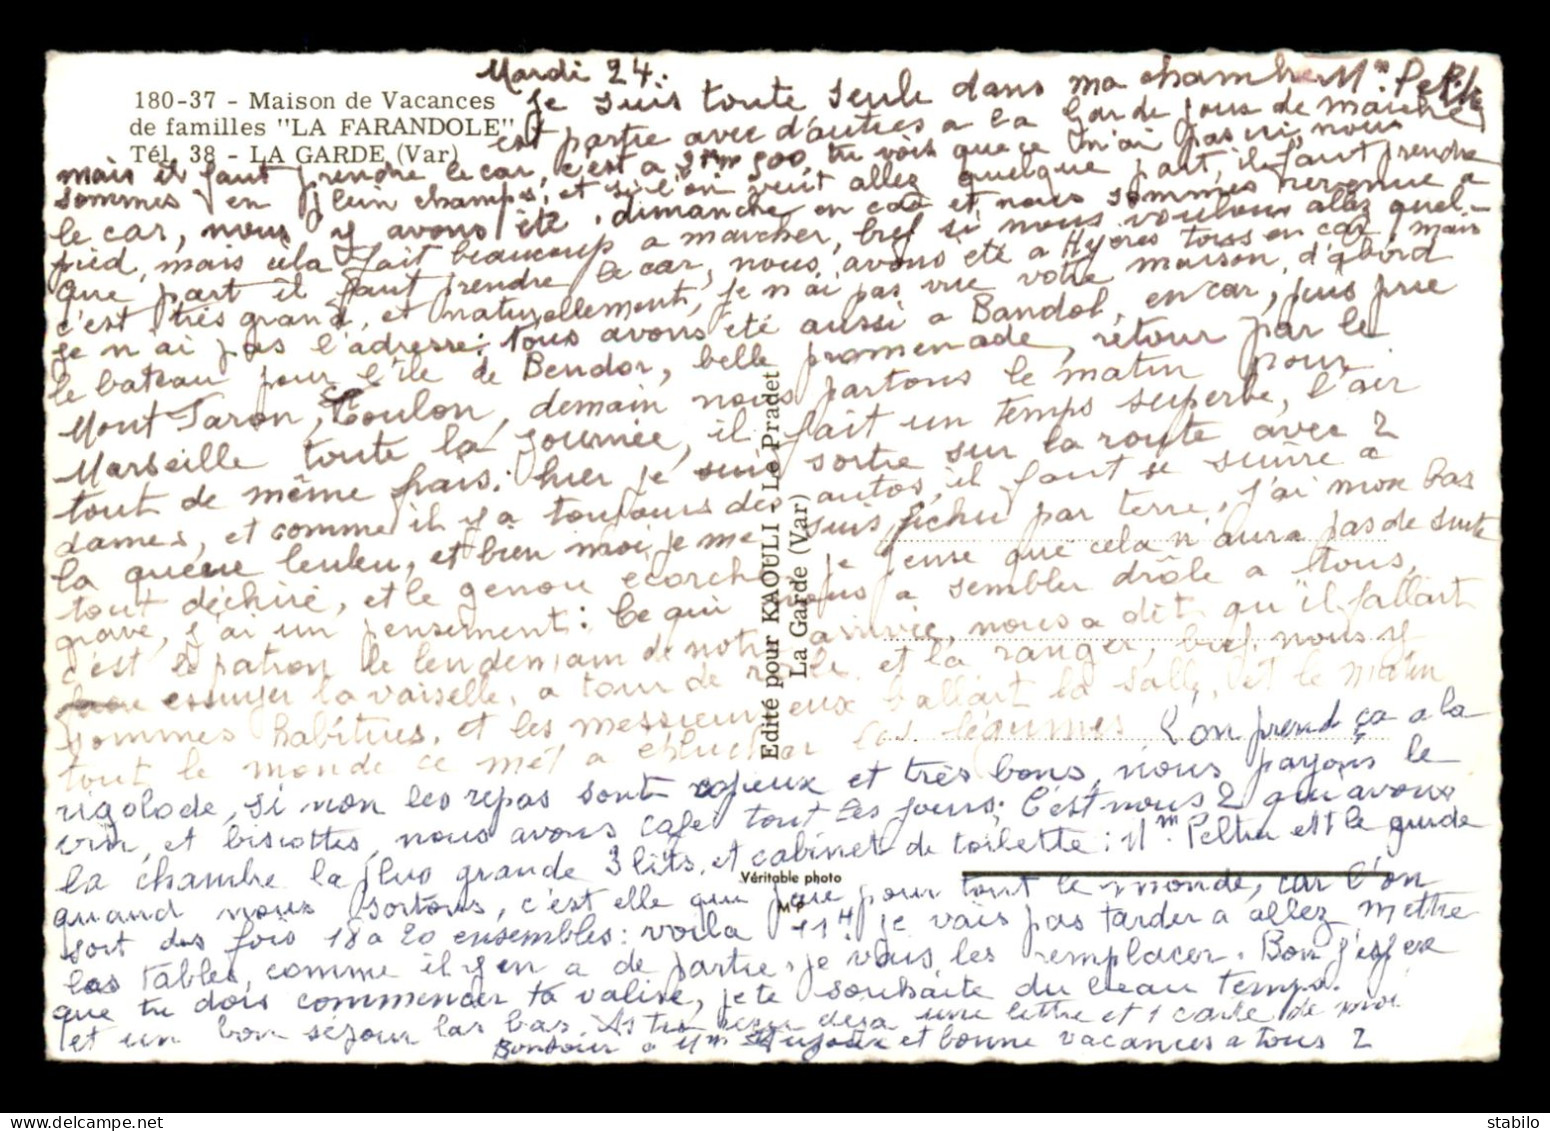 180-37 - Maison de Vacances
de familles "LA FARANDOLE"
Tél. 38 - LA GARDE (Var)
Mardi 24.
Je suis toute seule dans ma chambre Mm.
est partie avec d'autres a la Garde jour de marché
mais il faut prendre le car, c'est a 3km 500, tu vois que ça m'ai pas ici, nous
sommes en plein champs, et si l'on veut allez quelque part, il faut prendre
le car, nous y avons été dimanche en car et nous sommes revenue a
pied, mais cela fait beaucoup a marcher, bref si nous voulons allez quel-
que part il faut prendre le car, nous avons été a Hyères tous en car, mais
c'est très grand, et naturellement, je n'ai pas vue votre maison, d'abord
je n'ai pas l'adresse: tous avons été aussi a Bandol, en car, puis prie
le bateau pour l'île de Bendor, belle promenade, retour par le
Mont Faron, Toulon, demain nous partons le matin pour
Marseille toute la journée, il fait un temps superbe, l'air
tout de même frais. hier je suis sortie sur la route avec 2
dames, et comme il y a toujours des autos, il faut se suivre a
la queue leuleu, et bien moi, je me suis fichu par terre, j'ai mon bas
tout déchiré, et le genou écorché, je pense que cela n'aura pas de suite
grave, j'ai un pensement: Ce qui nous a sembler drôle a tous,
c'est le patron le lendemain de notre arrivée, nous a dit qu'il fallait
essuyer la vaiselle, a tour de role, et la ranger, bref, nous y
sommes habitues, et les messieurs eux ballait la salle, et le matin
tout le monde ce met a eplucher les légumes L'on prend ça a la
rigolade, si non les repas sont copieux et très bons, nous payons le
vin, et biscottes, nous avons café tout les jours; C'est nous 2 qui avons
la chambre la plus grande 3 lits, et cabinet de toilette: Mm Peltier est le guide
quand nous sortons, c'est elle qui paie pour tout le monde, car l'on
sort des fois 18 a 20 ensembles: voila 11H je vais pas tarder a allez mettre
les tables, comme il y en a de partie, je vais les remplacer. Bon j'espere
que tu dois commencer ta valise, je te souhaite du beau temps.
et un bon séjour las bas. As tu reçu deja une lettre et 1 carte de moi
Bonjour a Mm et bonne vacances a tous 2
Edité pour KAOULI - Le Pradet
La Garde (Var)
Véritable photo
M P
delcampe.net
stabilo